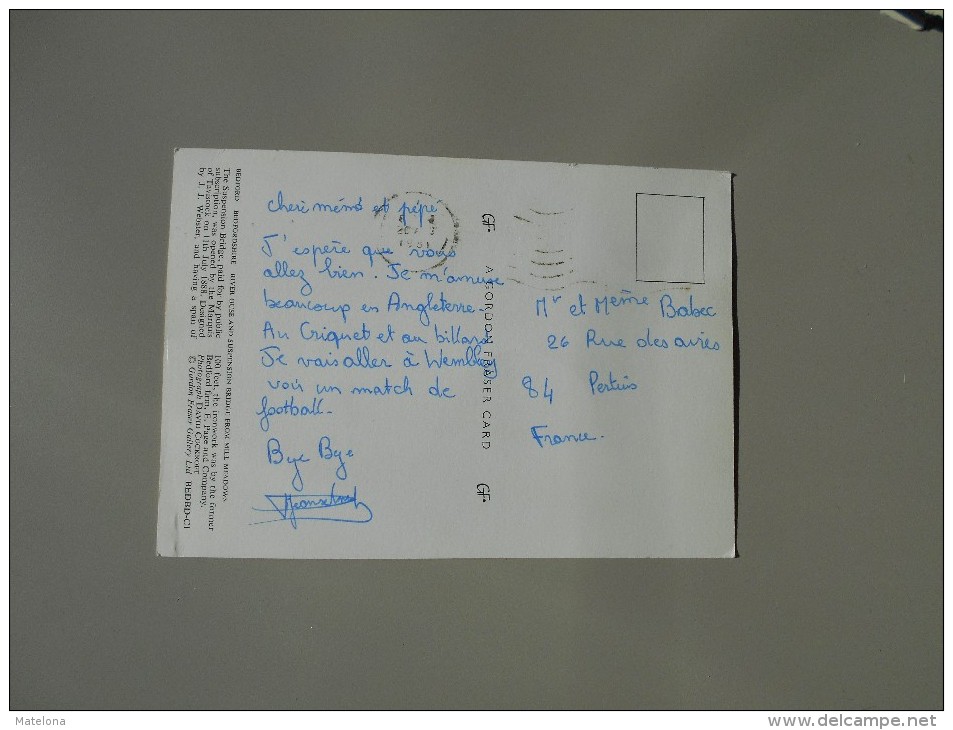 cheré mémé et pépé
J'espère que vous
allez bien. Je m'amuse
beaucoup en Angleterre.
Au Criquet et au billard
Je vais aller à Wembley
voir un match de
football.
Bye Bye
Mr et Mème Babec
26 Rue des aires
84 Pertuis
France.
GF. A GORDON FRASER CARD GF.
BEDFORD BEDFORDSHIRE RIVER OUSE AND SUSPENSION BRIDGE FROM MILL MEADOWS
The Suspension Bridge, paid for by public
subscription, was opened by the Marquis
of Tavistock on 11th July 1888. Designed
by J. J. Webster, and having a span of
100 feet, the ironwork was by the former
Bedford firm, E. Page and Company.
Photograph DAVID COCKROFT
© Gordon Fraser Gallery Ltd BEDBD-C1
Matelona
delcampe.net